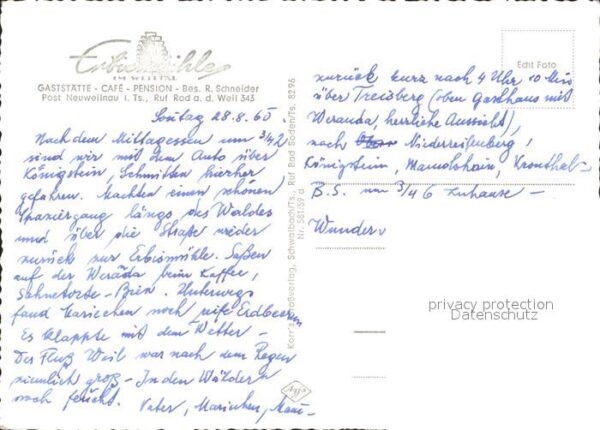 Erbismühle
IM WEILTAL
GASTSTÄTTE - CAFÉ - PENSION - Bes. R. Schneider
Post Neuweilnau i. Ts., Ruf Rod a. d. Weil 343
Sontag 28.8.60
Nach dem Mittagessen um 3/4 2
sind wir mit dem Auto über
Königstein, Schmitten hierher
gefahren. Machten einen schönen
Spaziergang längs des Waldes
und über die Straße wieder
zurück zur Erbismühle. Saßen
auf der Weranda beim Kaffee,
Sahnetorte - Bien. Unterwegs
fand Mariechen noch reife Erdbeeren
Es klappte mit dem Wetter -
Der Fluß Weil war nach dem Regen
ziemlich groß - In den Wäldern
noch feucht. Vater, Mariechen,
Korr's Großverlag, Schwalbach/Ts., Ruf Bad Soden/Ts. 8296
Nr. 581/59 d
Agfa
Echt Foto
zurück kurz nach 4 Uhr 10 Min
über Treisberg (oben Gasthaus mit
Weranda, herrliche Aussicht),
nach Niederreifenberg,
Königstein, Mamolshain, Kronthal -
B.S. um 3/4 6 zuhause -
Wunder
privacy protection
Datenschutz